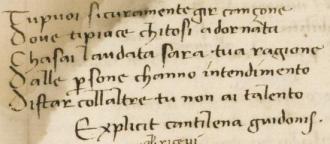 Tu puoi sicuramente gir cançone
Doue ti piace chi to si adornata
Cha sai laudata sara tua ragione
Dalle p̲sone channo intendimento
Di star collaltre tu non ai talento
Explicit cantilena guidonis.